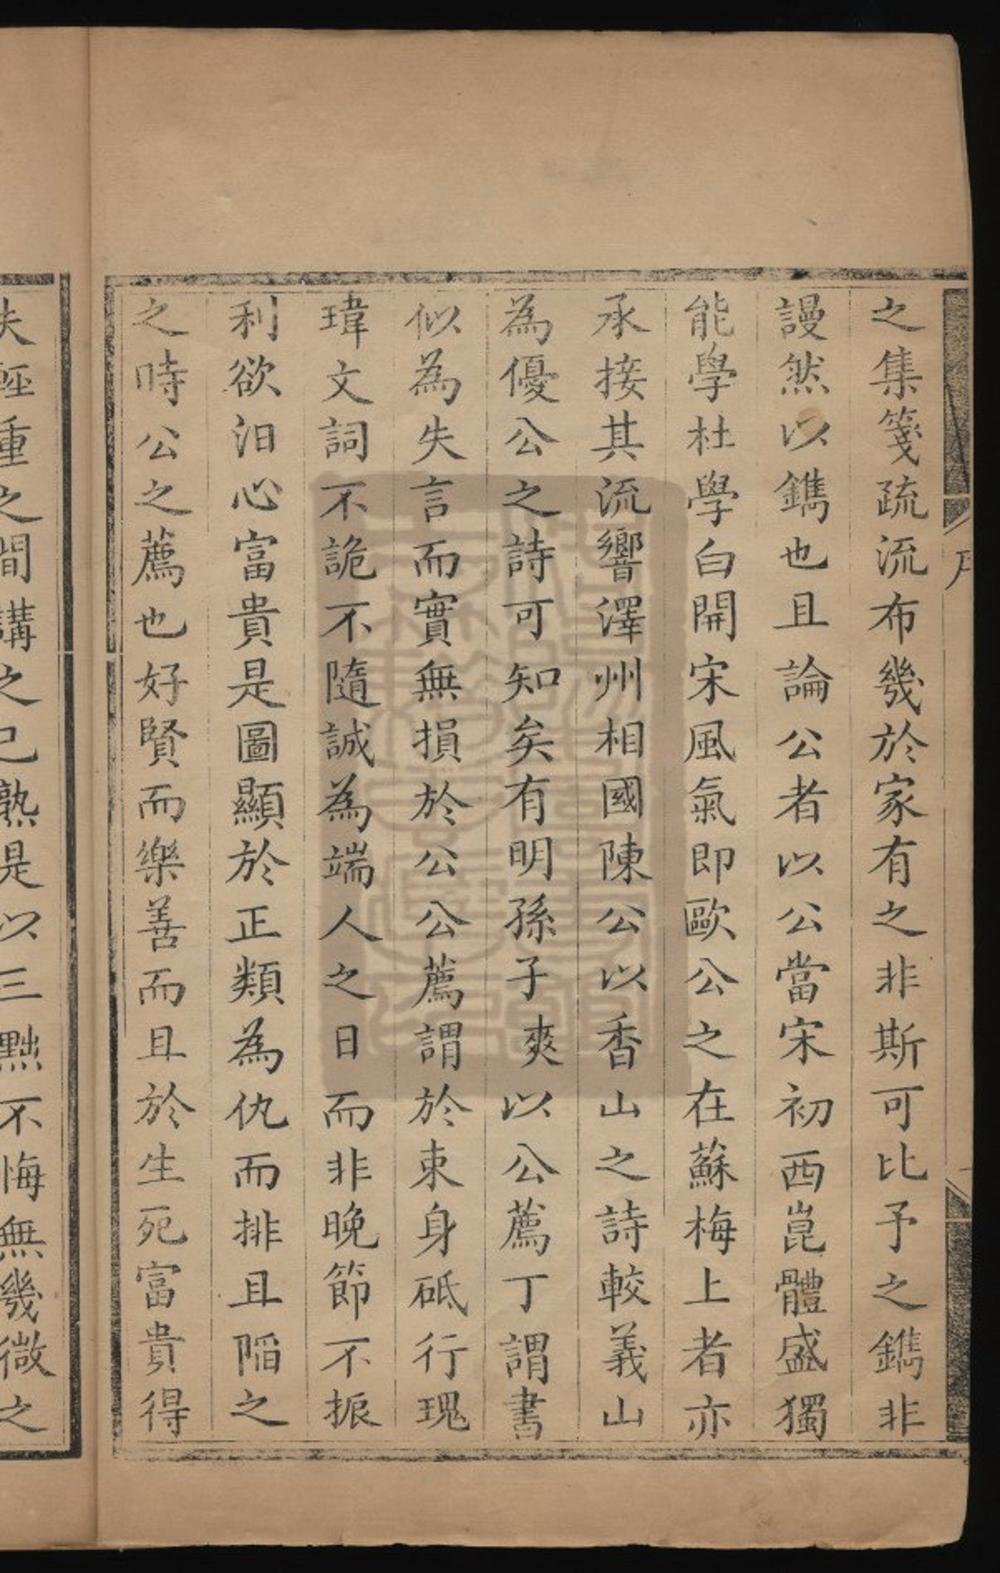 之集箋疏流布幾於家有之非斯可比予之鐫非
謾然以鐫也且論公者以公當宋初西崑體盛獨
能學杜學白開宋風氣即歐公之在蘇梅上者亦
承接其流響澤州相國陳公以香山之詩較義山
為優公之詩可知矣有明孫子爽以公薦丁謂書
似為失言而實無損於公公薦謂於束身砥行瑰
瑋文詞不詭不隨誠為端人之日而非晚節不振
利欲汨心富貴是圖顯於正類為仇而排且陷之
之時公之薦也好賢而樂善而且於生死富貴得
失輕重之間講之已熟是以三黜不悔無幾微之